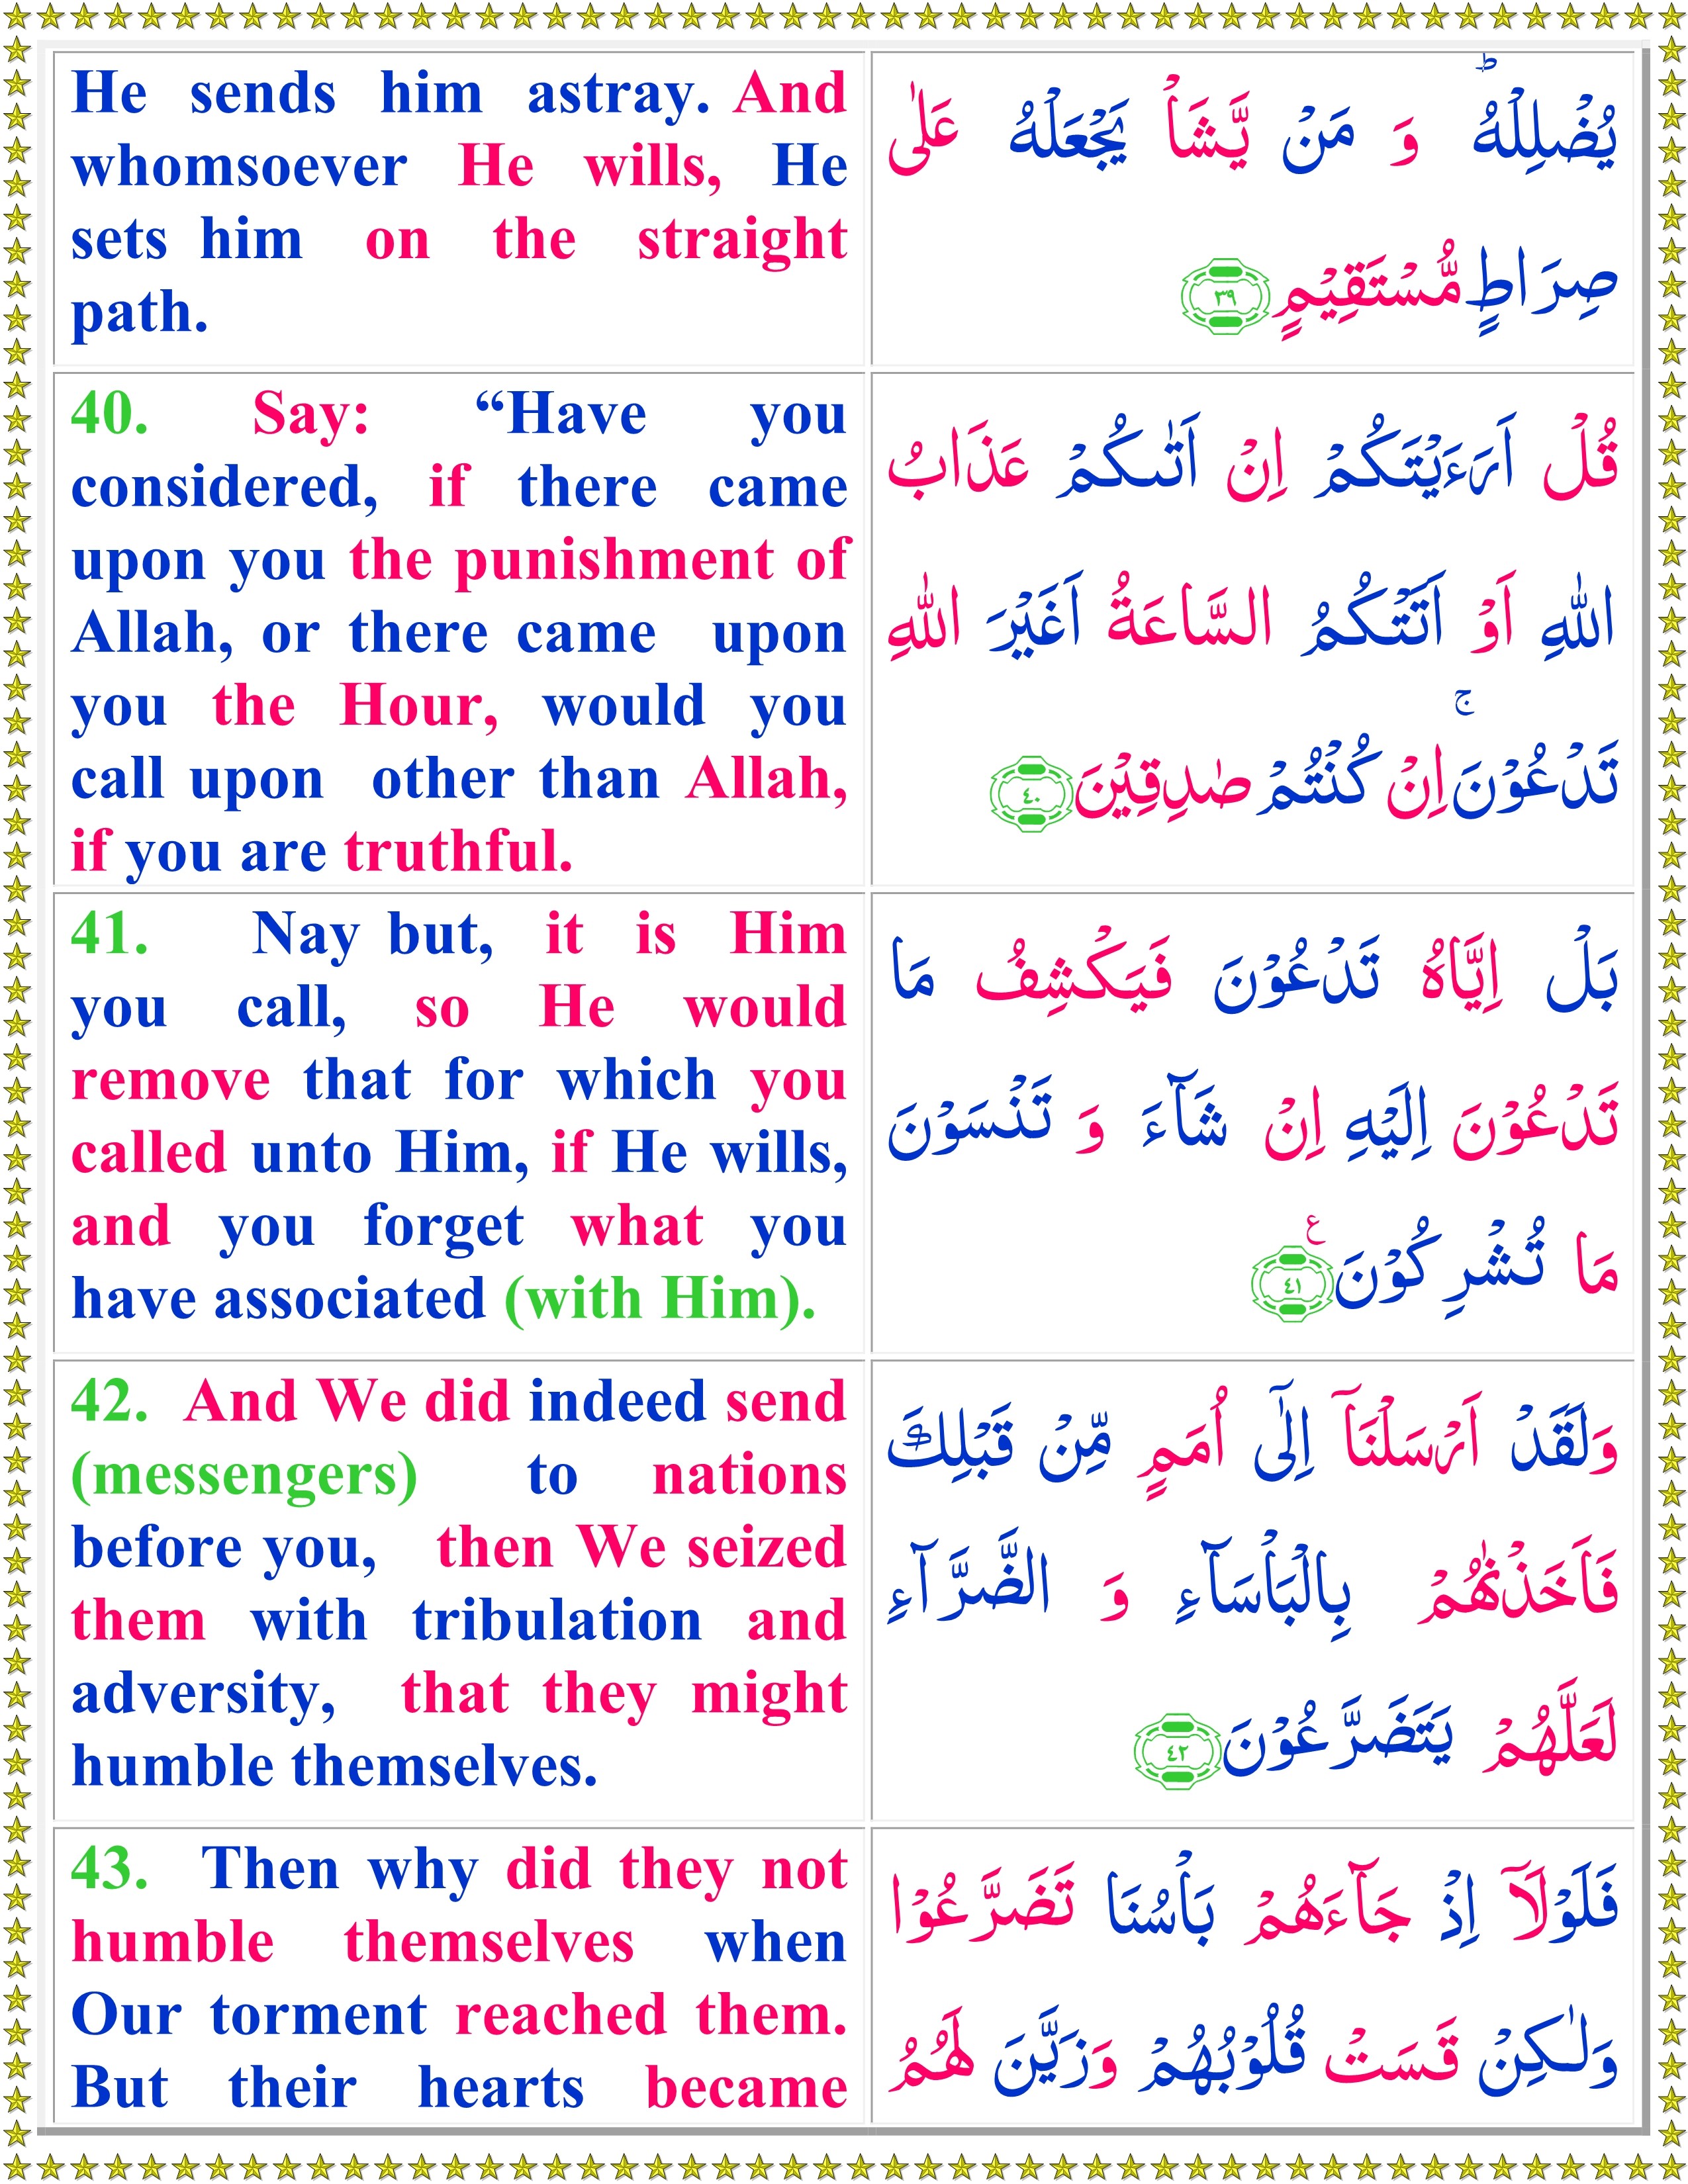 He sends him astray. And
whomsoever He wills, He
sets him on the straight
path.
يُضْلِلْهُ ؕ وَ مَنْ يَّشَاْ يَجْعَلْهُ عَلٰى
صِرَاطٍ مُّسْتَقِيْمٍ ٣٩
40. Say: “Have you
considered, if there came
upon you the punishment of
Allah, or there came upon
you the Hour, would you
call upon other than Allah,
if you are truthful.
قُلْ اَرَءَيْتَكُمْ اِنْ اَتٰٮكُمْ عَذَابُ
اللّٰهِ اَوْ اَتَتْكُمُ السَّاعَةُ اَغَيْرَ اللّٰهِ
تَدْعُوْنَ ۚ اِنْ كُنْتُمْ صٰدِقِيْنَ ٤٠
41. Nay but, it is Him
you call, so He would
remove that for which you
called unto Him, if He wills,
and you forget what you
have associated (with Him).
بَلْ اِيَّاهُ تَدْعُوْنَ فَيَكْشِفُ مَا
تَدْعُوْنَ اِلَيْهِ اِنْ شَآءَ وَ تَنْسَوْنَ
مَا تُشْرِكُوْنَ ٤١ ع
42. And We did indeed send
(messengers) to nations
before you, then We seized
them with tribulation and
adversity, that they might
humble themselves.
وَلَقَدْ اَرْسَلْنَاۤ اِلٰٓى اُمَمٍ مِّنْ قَبْلِكَ
فَاَخَذْنٰهُمْ بِالْبَاْسَآءِ وَ الضَّرَّآءِ
لَعَلَّهُمْ يَتَضَرَّعُوْنَ ٤٢
43. Then why did they not
humble themselves when
Our torment reached them.
But their hearts became
فَلَوْلَاۤ اِذْ جَآءَهُمْ بَاْسُنَا تَضَرَّعُوْا
وَلٰـكِنْ قَسَتْ قُلُوْبُهُمْ وَزَيَّنَ لَهُمُ